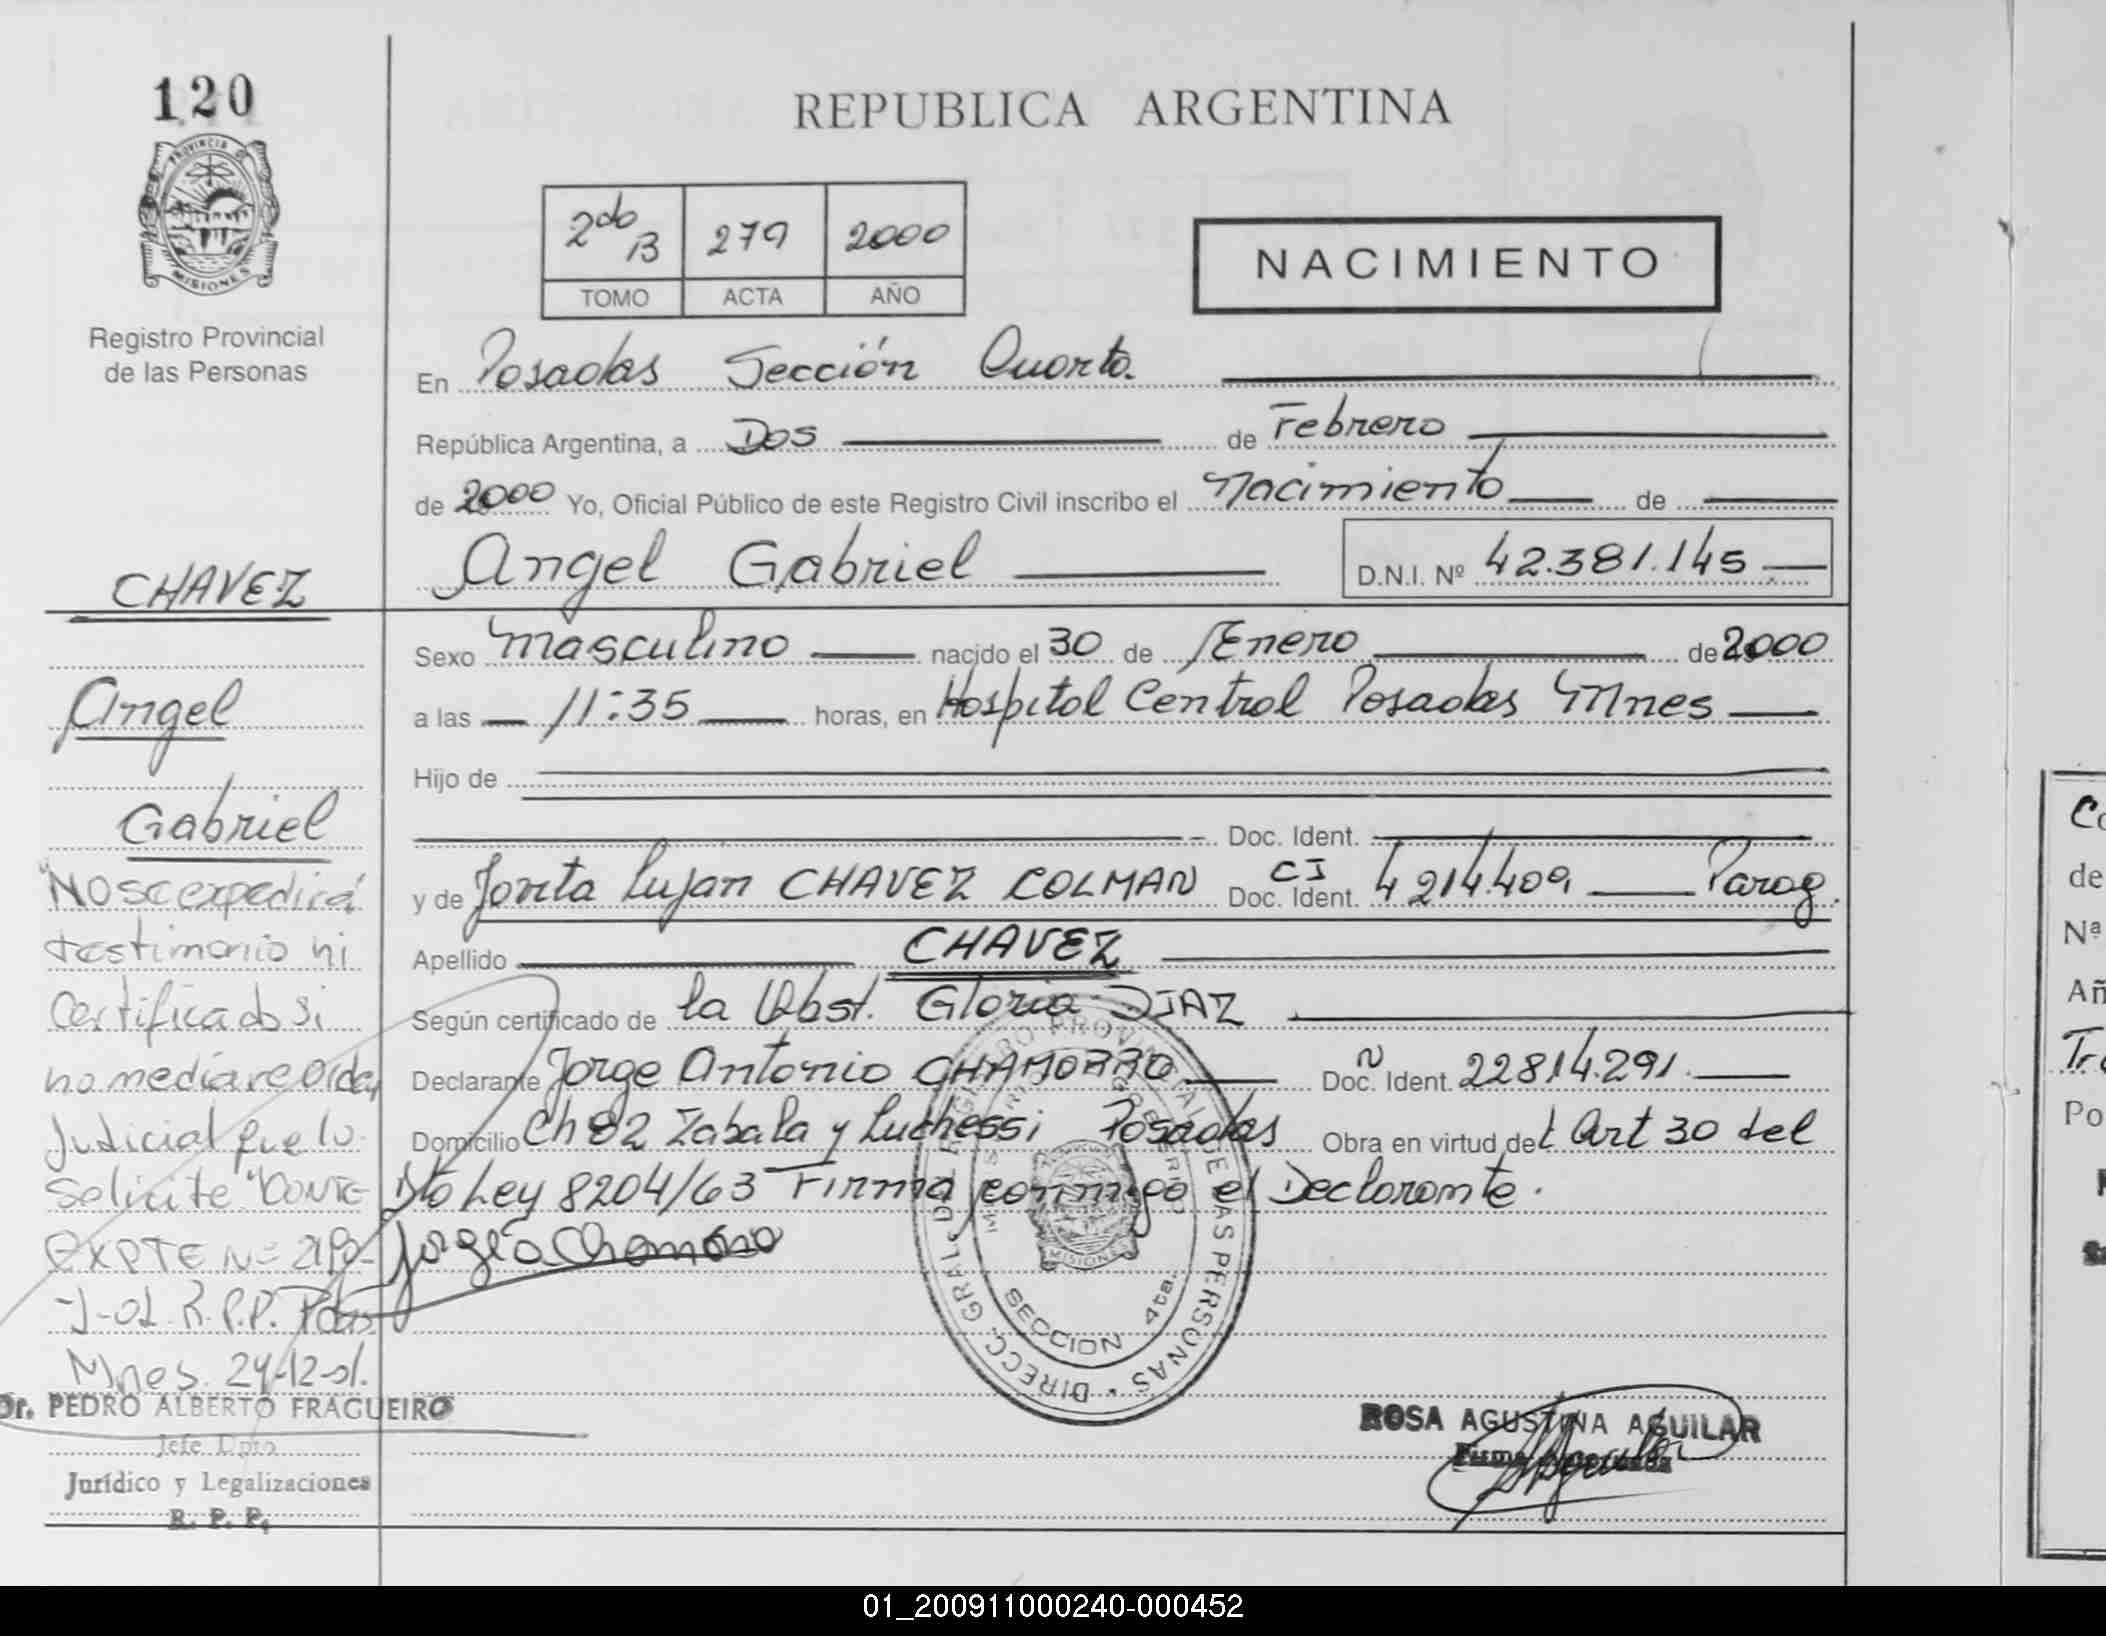 120
PROVINCIA DE
MISIONES
Registro Provincial
de las Personas
REPUBLICA ARGENTINA
2do B 279 2000
TOMO ACTA AÑO
NACIMIENTO
En Posadas Sección Cuarta.
República Argentina, a Dos de Febrero
de 2000 Yo, Oficial Público de este Registro Civil inscribo el Nacimiento de
Angel Gabriel D.N.I. Nº 42.381.145
Sexo Masculino nacido el 30 de Enero de 2000
a las 11:35 horas, en Hospital Central Posadas Mnes
Hijo de
Doc. Ident.
y de Lujan CHAVEZ COLMAN Doc. Ident. CI 4214.409 Parag.
Apellido CHAVEZ
Según certificado de la Obst. Gloria DIAZ
Declarante Jorge Antonio CHAMORRO Doc. Ñ Ident. 22814.291.
Domicilio Ch 82 Zabala y Luchessi Posadas Obra en virtud del Art 30 del
Dto Ley 8204/63 Firma conmigo el Declarante.
Jorge A Chamorro
CHAVEZ
Angel
Gabriel
"No se expedirá
testimonio ni
Certificado si
no media
Judicial que lo
Solicite"
EXPTE Nº
R.P.P. Pdas
Mnes. 24-12-01.
Dr. PEDRO ALBERTO FRAGUEIRO
Jefe Dpto
Jurídico y Legalizaciones
R. P. P.
DIRECC. GRAL. DEL REGISTRO PROVINCIAL DE LAS PERSONAS
GOBIERNO
MISIONES
SECCION 4ta.
ROSA AGUSTINA AGUILAR
Firma Autorizada
Co
de
Nª
Añ
Po
01_200911000240-000452